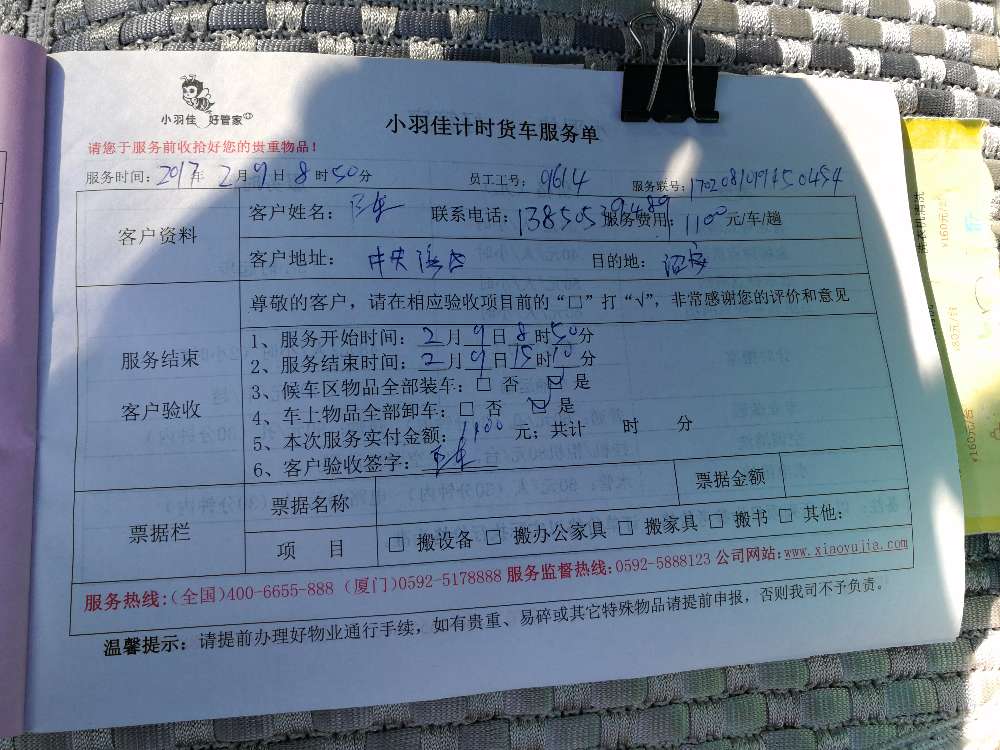 小羽佳 好管家
小羽佳计时货车服务单
请您于服务前收拾好您的贵重物品！
服务时间：2017年2月9日8时50分 员工工号：9614 服务联号：
客户资料
客户姓名： 联系电话： 服务费用：1100元/车/趟
客户地址：中央 目的地：
服务结束
客户验收
尊敬的客户，请在相应验收项目前的“□”打“√”，非常感谢您的评价和意见
1、服务开始时间：2月9日8时50分
2、服务结束时间：2月9日15时10分
3、候车区物品全部装车：□ 否 ☑ 是
4、车上物品全部卸车：□ 否 ☑ 是
5、本次服务实付金额：1100 元；共计 时 分
6、客户验收签字：
票据栏
票据名称 票据金额
项 目 □ 搬设备 □ 搬办公家具 □ 搬家具 □ 搬书 □ 其他：
服务热线：(全国)400-6655-888 (厦门)0592-5178888 服务监督热线：0592-5888123 公司网站：www.xiaoyujia.com
温馨提示：请提前办理好物业通行手续，如有贵重、易碎或其它特殊物品请提前申报，否则我司不予负责。